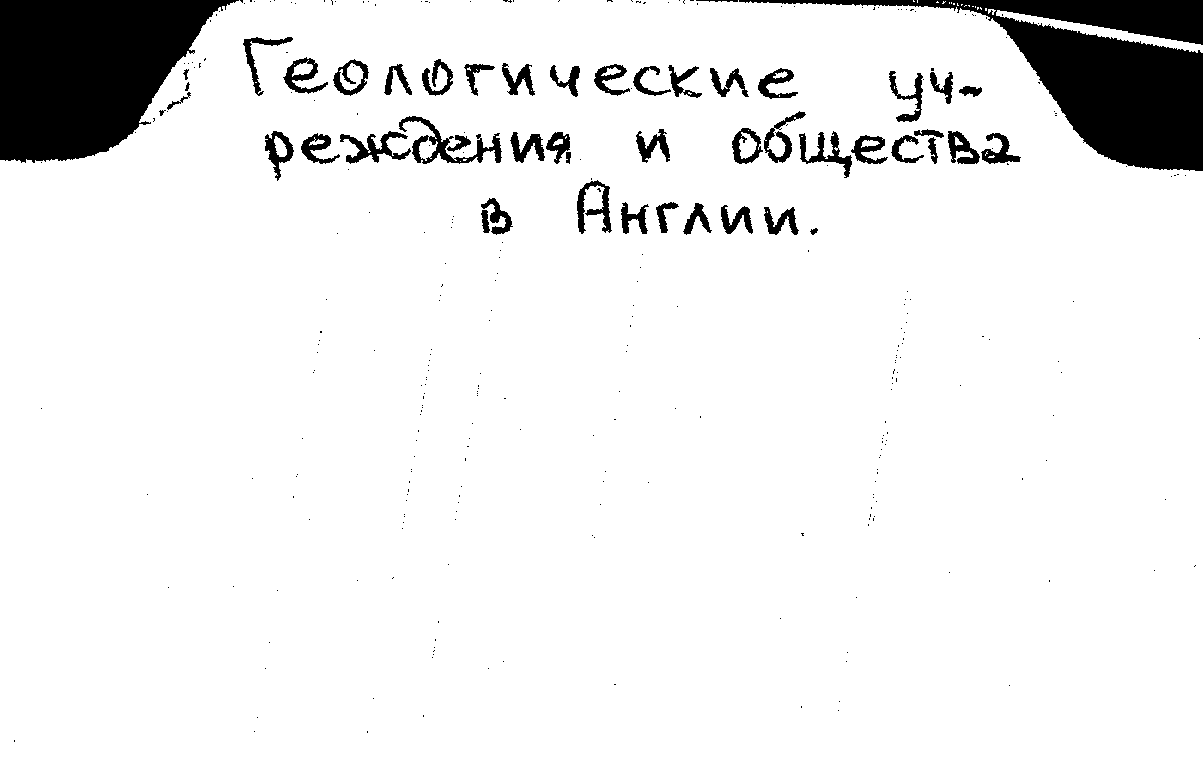 Геологические уч-
реждения и общества
в Англии.